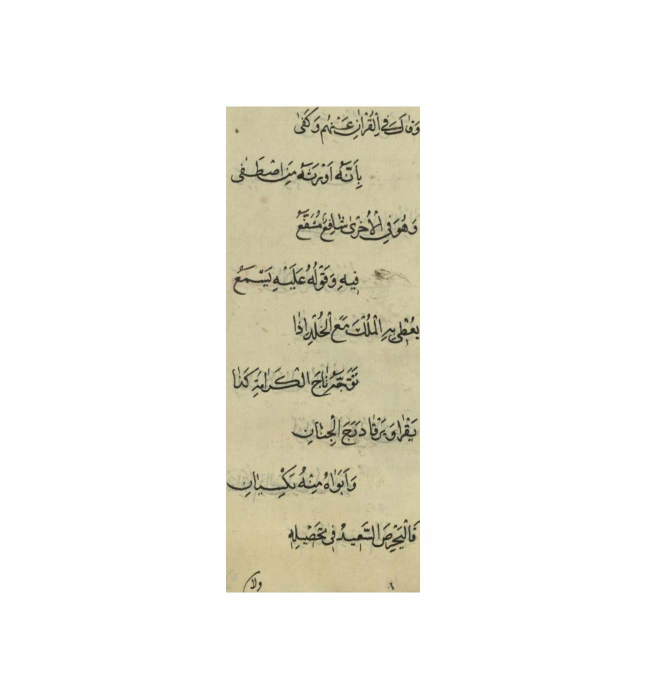 وَقَالَ فِي الْقُرْانِ عَنْهُم وَكَفٰى
بِاَنَّهُ اَوْرَثَهُ مَنِ اصْطَفٰى
وَهُوَ فِي الْاُخْرٰى شَافِعٌ مُشَفَّعُ
فِيهِ وَقَوْلُهُ عَلَيْهِ يُسْمَعُ
يُعْطٰى بِهِ الْمُلْكَ مَعَ الْخُلْدِ اِذَا
تَوَّجَهُ تَاجَ الْكَرَامَةِ كَذَا
يَقْرَا وَيَرْقَا دَرَجَ الْجِنَانِ
وَاَبَوَاهُ مِنْهُ يُكْسَيَانِ
فَالْيَحْرِصَ السَّعِيدُ فِي تَحْصِيلِهِ
ولا